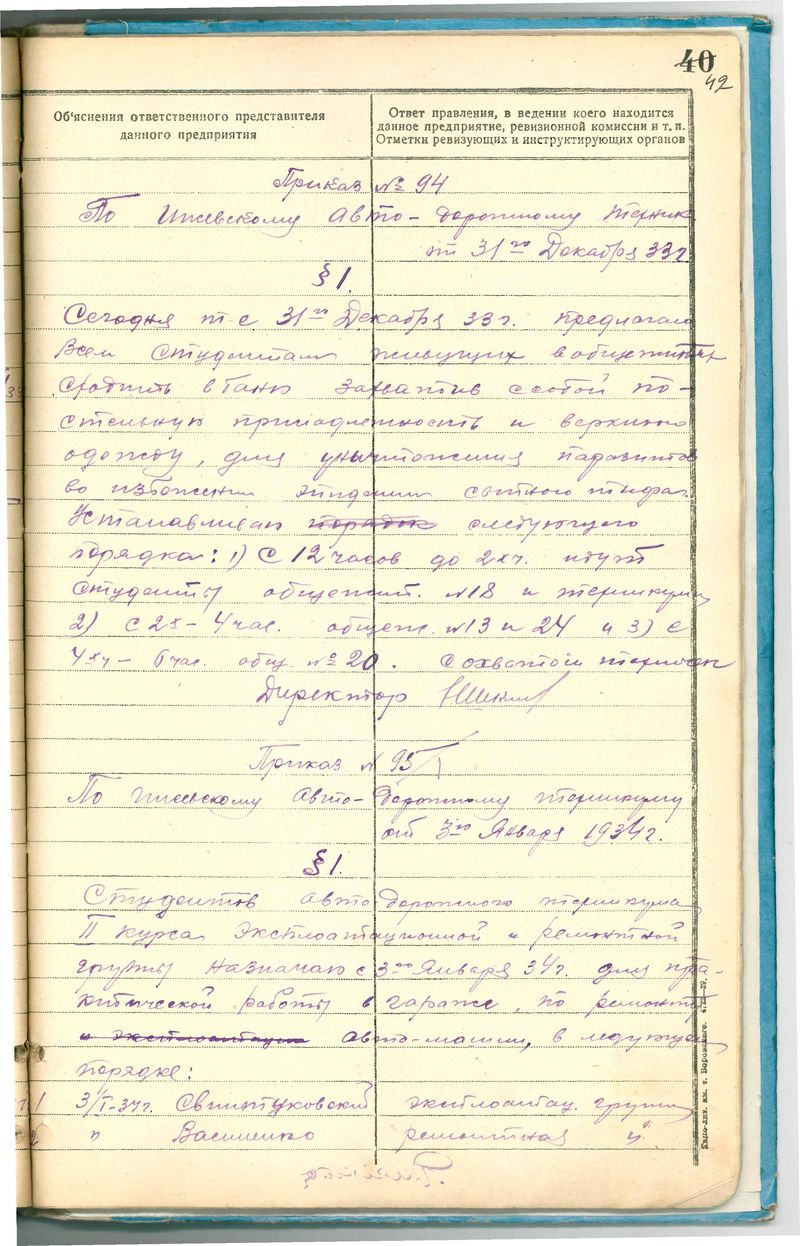 40
42
Об'яснения ответственного представителя
данного предприятия
Ответ правления, в ведении коего находится
данное предприятие, ревизионной комиссии и т. п.
Отметки ревизующих и инструктирующих органов
Приказ № 94
По Ижевскому Авто-дорожному техник
от 31го Декабря 33г
§ 1.
Сегодня т-е 31го Декабря 33г. предлагаю
всем студентам живущих в общежитиях
сходить в баню захватив с собой по-
стельную принадлежность и верхнюю
одежду, для уничтожения паразитов
во избежении эпидемии сыпного тифа.
Устанавливаю порядок следующего
порядка: 1) С 12 часов до 2х ч. идут
студенты общежит. №18 и техникум
2) с 2х - 4 час. общеж. №13 и 24 и 3) с
4х ч - 6 час. общ. № 20. с охватом
Директор
Приказ № 95/1
По Ижевскому Авто-Дорожному техникуму
от 3го Января 1934г.
§ 1.
Студентов авто дорожного техникума
II курса Эксплоатационной и ремонтной
группы назначаю с 3го Января 34г. для пра-
ктической работы в гараже, по ремонту
и эксплоатации авто-машин, в следующем
порядке:
1 3/I-34г. Свинтуковский эксплоатац. группы
2 " Василенко ремонтная "
Вадо-лит. им. т. Воровского.